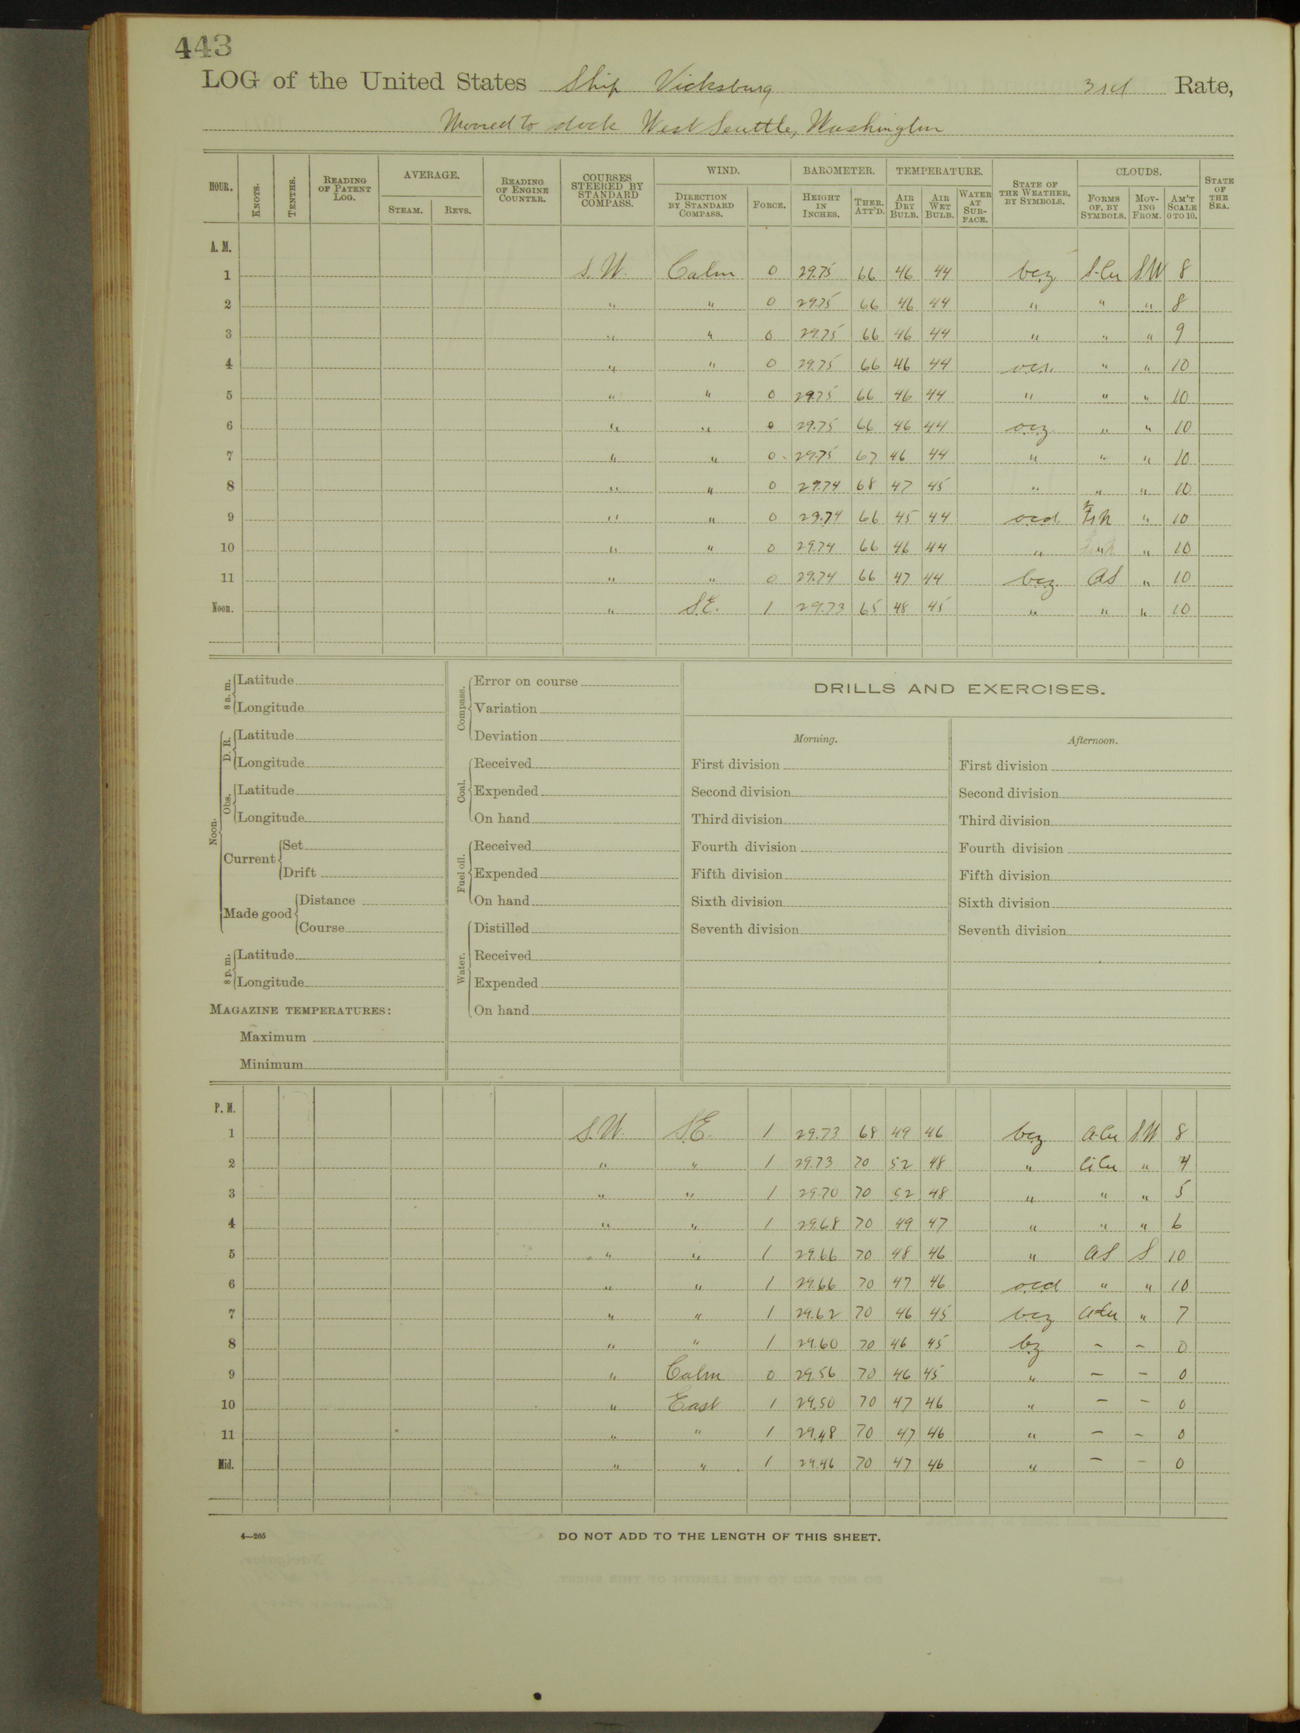 443
LOG of the United States Ship Vicksburg 3rd Rate,
Moored to dock West Seattle, Washington
HOUR. KNOTS. TENTHS. READING OF PATENT LOG. AVERAGE. STEAM. REVS. READING OF ENGINE COUNTER. COURSES STEERED BY STANDARD COMPASS. WIND. DIRECTION BY STANDARD COMPASS. FORCE. BAROMETER. HEIGHT IN INCHES. THER. ATT'D. TEMPERATURE. AIR DRY BULB. AIR WET BULB. WATER AT SURFACE. STATE OF THE WEATHER, BY SYMBOLS. CLOUDS. FORMS OF, BY SYMBOLS. MOVING FROM. AM'T SCALE 0 TO 10. STATE OF THE SEA.
A. M.
1 S.W. Calm 0 29.75 66 46 44 bcz S-Cu SW 8
2 " " 0 29.75 66 46 44 " " " 8
3 " " 0 29.75 66 46 44 " " " 9
4 " " 0 29.75 66 46 44 " " 10
5 " " 0 29.75 66 46 44 " " " 10
6 " " 0 29.75 66 46 44 ocz " " 10
7 " " 0 29.75 67 46 44 " " " 10
8 " " 0 29.74 68 47 45 " " " 10
9 " " 0 29.74 66 45 44 ocd " 10
10 " " 0 29.74 66 46 44 " " " 10
11 " " 0 29.74 66 47 44 bcz AS " 10
Noon. " S.E. 1 29.73 65 48 45 " " " 10
8 a. m. Latitude
Longitude
Noon. D. R. Latitude
Longitude
Obs. Latitude
Longitude
Current Set
Drift
Made good Distance
Course
8 p. m. Latitude
Longitude
MAGAZINE TEMPERATURES:
Maximum
Minimum
Compass. Error on course
Variation
Deviation
Coal. Received
Expended
On hand
Fuel oil. Received
Expended
On hand
Water. Distilled
Received
Expended
On hand
DRILLS AND EXERCISES.
Morning.
First division
Second division
Third division
Fourth division
Fifth division
Sixth division
Seventh division
Afternoon.
First division
Second division
Third division
Fourth division
Fifth division
Sixth division
Seventh division
P. M.
1 S.W. S.E. 1 29.73 68 49 46 bcz A-Cu SW 8
2 " " 1 29.73 70 52 48 " Ci Cu " 4
3 " " 1 29.70 70 52 48 " " " 5
4 " " 1 29.68 70 49 47 " " " 6
5 " " 1 29.66 70 48 46 " AS S 10
6 " " 1 29.66 70 47 46 ocd " " 10
7 " " 1 29.62 70 46 45 bcz A-Cu " 7
8 " " 1 29.60 70 46 45 bz - - 0
9 " Calm 0 29.56 70 46 45 " - - 0
10 " East 1 29.50 70 47 46 " - - 0
11 " " 1 29.48 70 47 46 " - - 0
Mid. " " 1 29.46 70 47 46 " - - 0
4—265 DO NOT ADD TO THE LENGTH OF THIS SHEET.